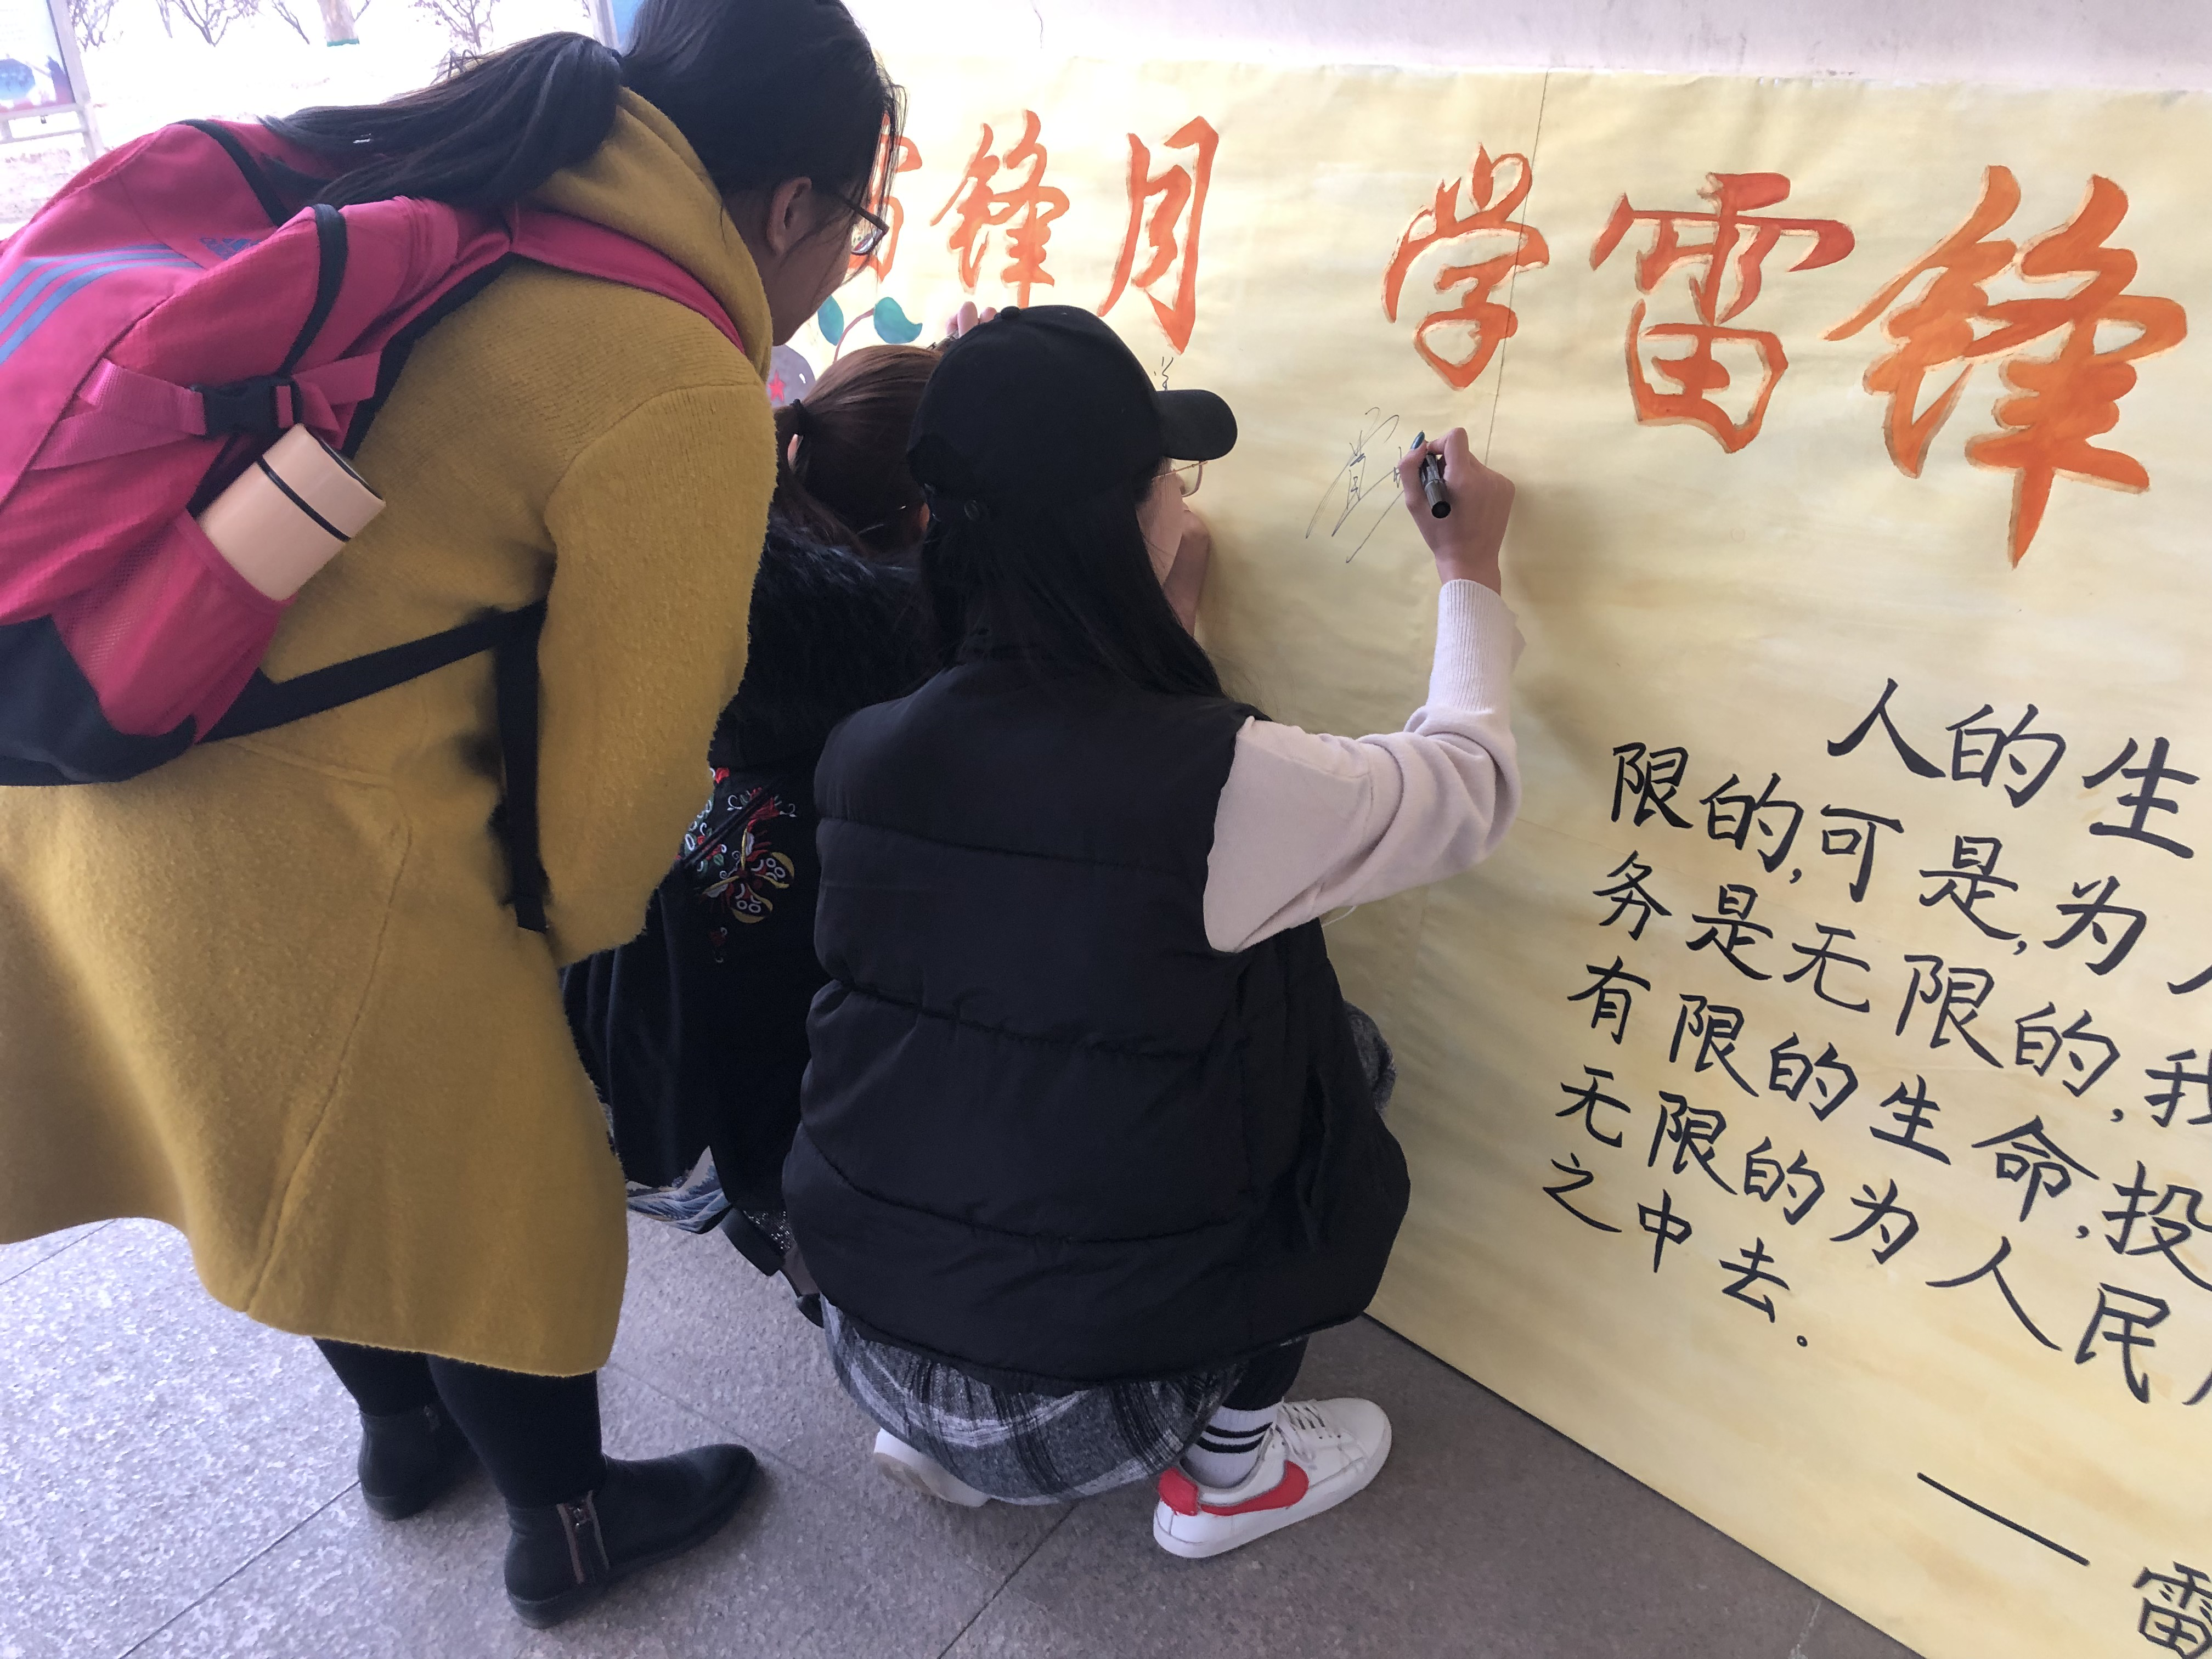 雷锋月 学雷锋
人的生
限的,可是,为人
务是无限的,我
有限的生命,投
无限的为人民
之中去。
——雷